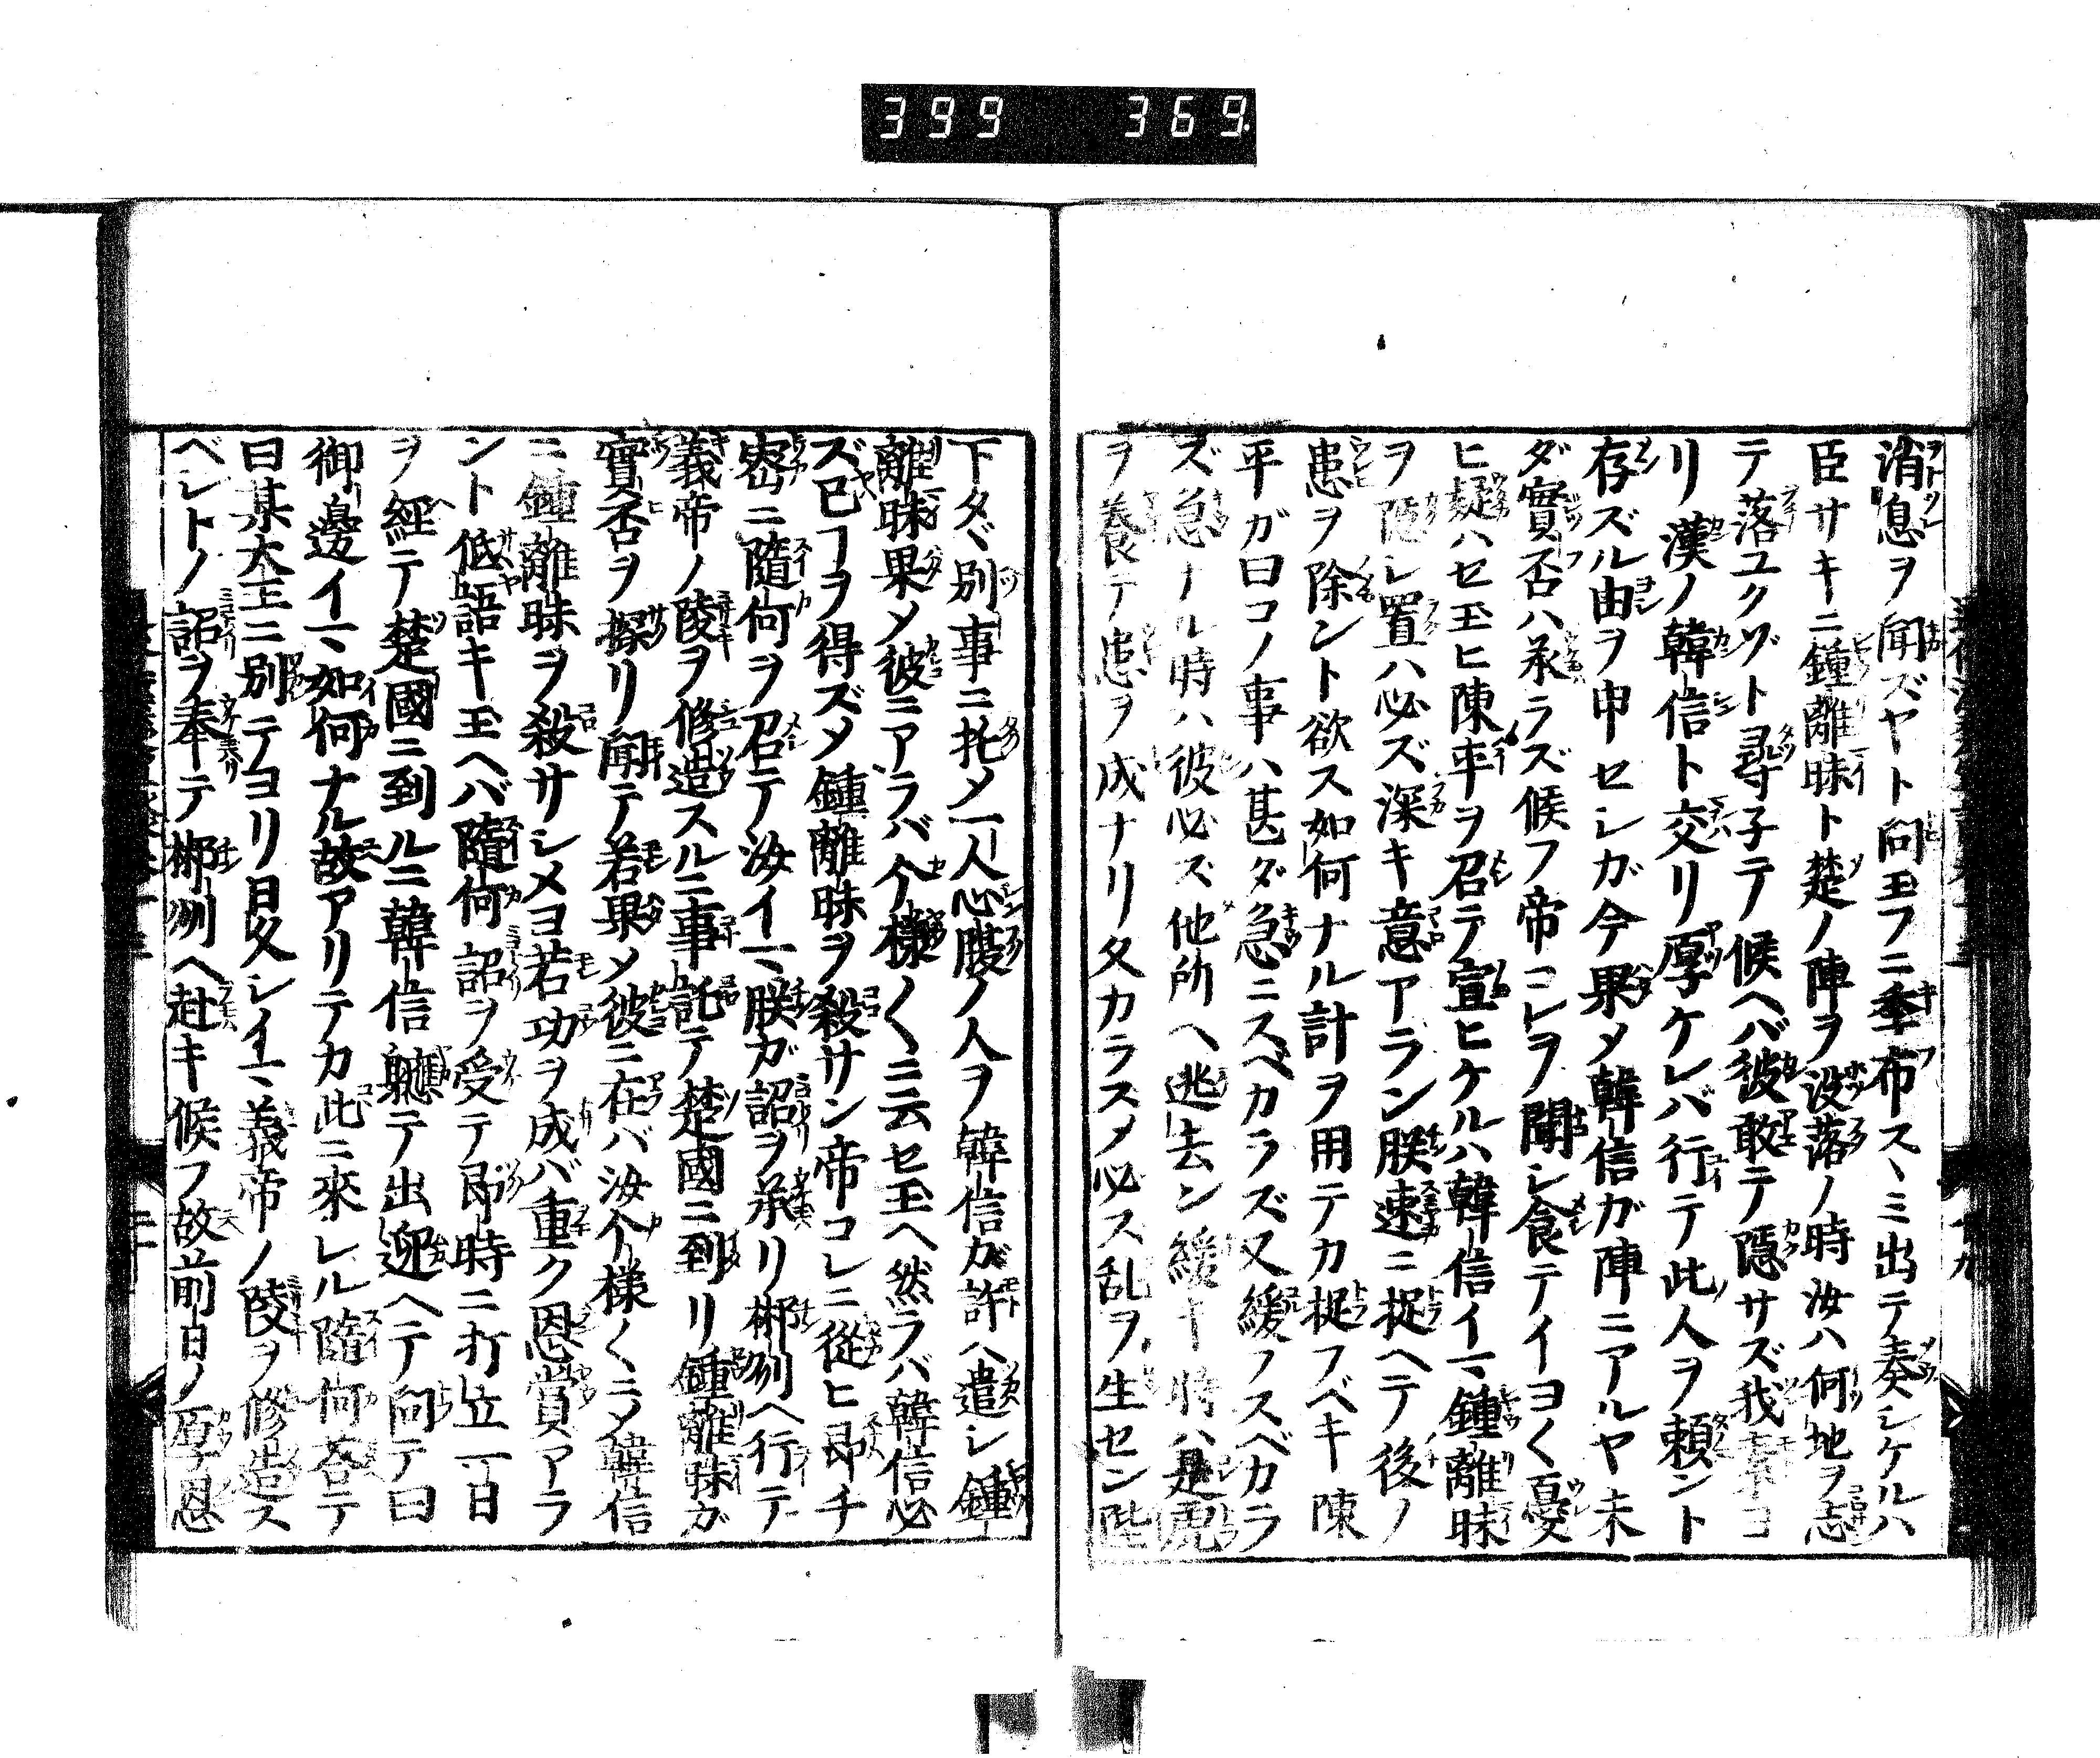 399 369
消息ヲ聞ズヤト問玉フニ季布スヽミ出テ奏シケルハ
臣サキニ鍾離昧ト楚ノ陣ヲ没落ノ時汝ハ何地ヲ志
テ落ユクゾト尋子テ候ヘバ彼敢テ隠サズ我素ヨ
リ漢ノ韓信ト交リ厚ケレバ行テ此人ヲ頼ント
存ズル由ヲ申セシガ今果メ韓信ガ陣ニアルヤ未
ダ實否ハ承ラズ候フ帝コレヲ聞シ食テイヨ〱憂
ヒ疑ハセ玉ヒ陳平ヲ召テ宣ヒケルハ韓信イマ鍾離昧
ヲ隠シ置ハ必ズ深キ意アラン朕速ニ捉ヘテ後ノ
患ヲ除ント欲ス如何ナル計ヲ用テカ捉フベキ陳
平ガ曰コノ事ハ甚ダ急ニスベカラズ又緩フスベカラ
ズ急ナル時ハ彼必ズ他所ヘ逃去ン緩キ時ハ是虎
ヲ養テ患ヲ成ナリ久カラスメ必ス乱ヲ生セン陛
下タヾ別事ニ托メ一人心腹ノ人ヲ韓信ガ許ヘ遣シ鍾
離昧果メ彼ニアラバ个樣〱ニ云セ玉ヘ然ラバ韓信必
ズ已ヿヲ得ズメ鍾離昧ヲ殺サン帝コレニ從ヒ即チ
密ニ隨何ヲ召テ汝イマ朕ガ詔ヲ承リ郴州ヘ行テ
義帝ノ陵ヲ修造スルニ事託テ楚國ニ到リ鍾離昧ガ
實否ヲ探リ聞テ若果メ彼ニ在バ汝个様〱ニメ韓信
ニ鍾離昧ヲ殺サシメヨ若功ヲ成バ重ク恩賞アラ
ント低語キ玉ヘバ隨何詔ヲ受テ即時ニ打立一日
ヲ經テ楚國ニ到ルニ韓信聽テ出迎ヘテ問テ曰
御邊イマ如何ナル故アリテカ此ニ來レル隨何荅テ
曰某大王ニ別テヨリ日久シイマ義帝ノ陵ヲ修造ス
ベシトノ詔ヲ奉テ郴州ヘ赴キ候フ故前日ノ厚恩